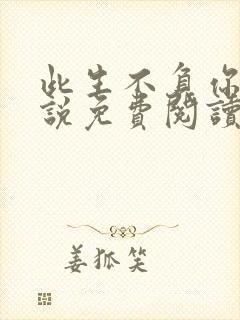 此生不負你
說免費閱讀
姜狐笑